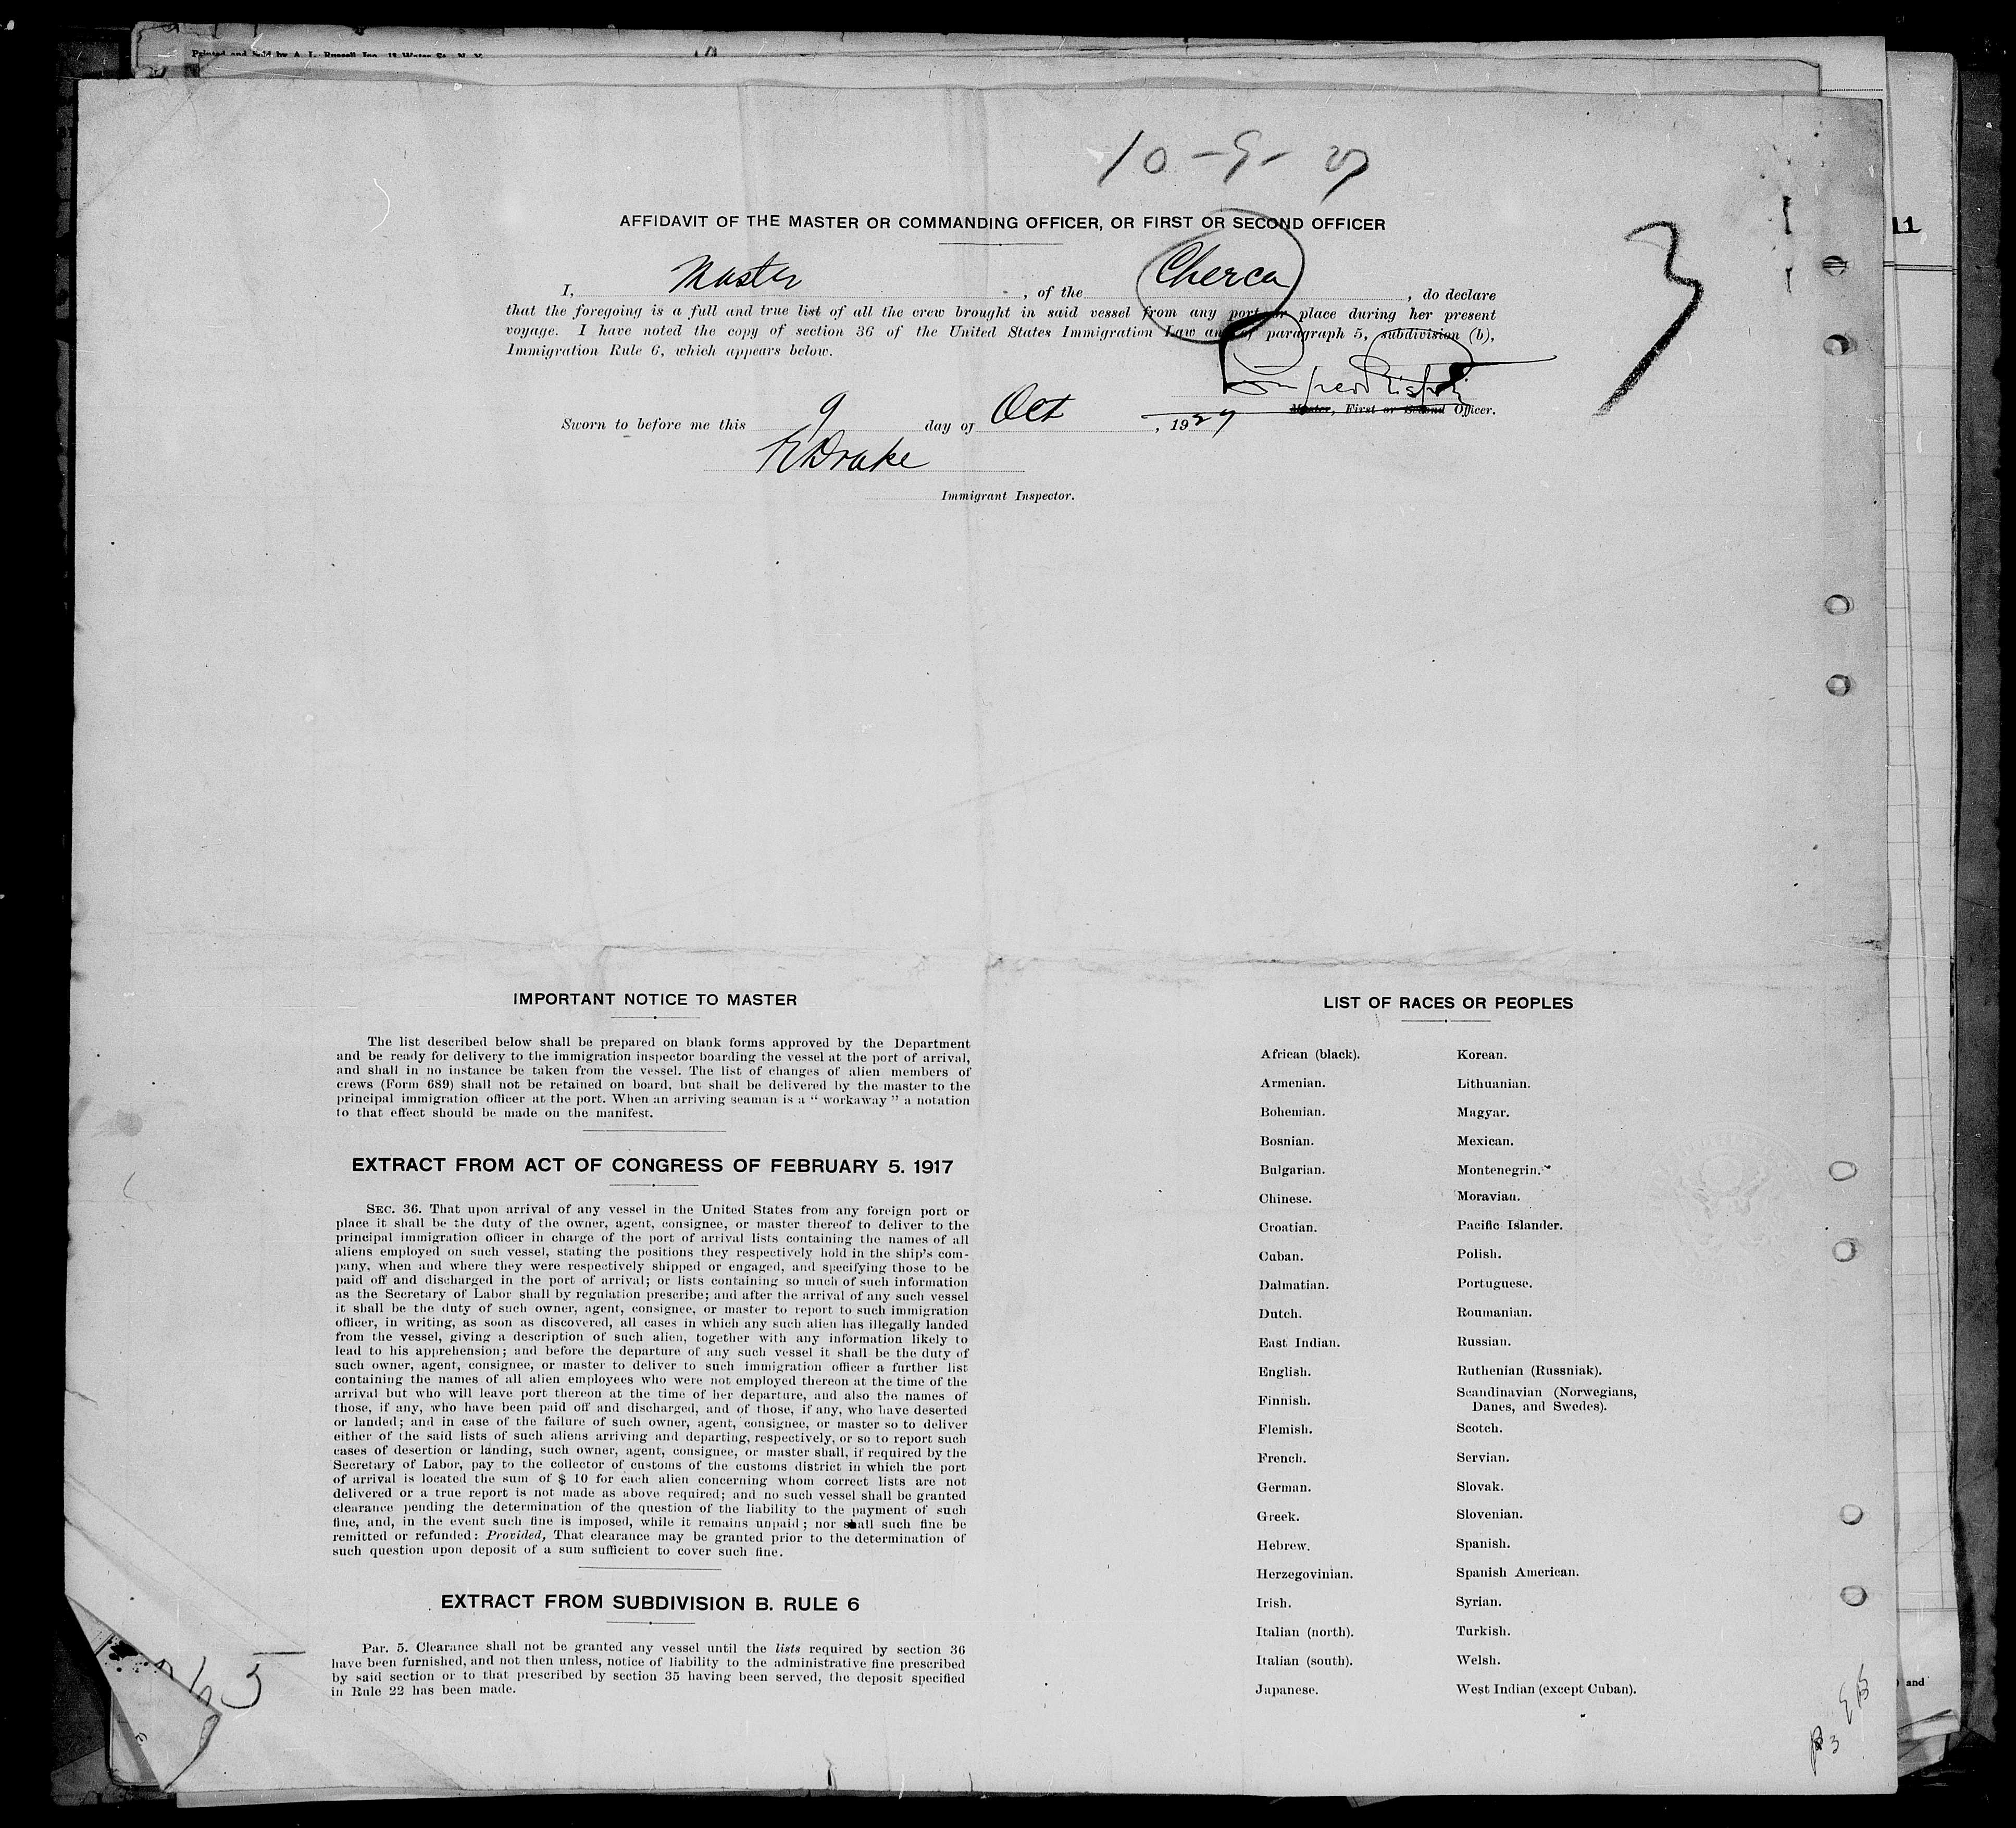 Printed and Sold by A. L. Russell Inc. 13 Water St. N. Y.
10-9-27
11
3
AFFIDAVIT OF THE MASTER OR COMMANDING OFFICER, OR FIRST OR SECOND OFFICER
I, Master, of the Cherca, do declare
that the foregoing is a full and true list of all the crew brought in said vessel from any port or place during her present
voyage. I have noted the copy of section 36 of the United States Immigration Law and of paragraph 5, subdivision (b),
Immigration Rule 6, which appears below.
Master, First or Second Officer.
Sworn to before me this 9 day of Oct, 1927
Drake
Immigrant Inspector.
IMPORTANT NOTICE TO MASTER
The list described below shall be prepared on blank forms approved by the Department
and be ready for delivery to the immigration inspector boarding the vessel at the port of arrival,
and shall in no instance be taken from the vessel. The list of changes of alien members of
crews (Form 689) shall not be retained on board, but shall be delivered by the master to the
principal immigration officer at the port. When an arriving seaman is a " workaway " a notation
to that effect should be made on the manifest.
EXTRACT FROM ACT OF CONGRESS OF FEBRUARY 5. 1917
SEC. 36. That upon arrival of any vessel in the United States from any foreign port or
place it shall be the duty of the owner, agent, consignee, or master thereof to deliver to the
principal immigration officer in charge of the port of arrival lists containing the names of all
aliens employed on such vessel, stating the positions they respectively hold in the ship's com-
pany, when and where they were respectively shipped or engaged, and specifying those to be
paid off and discharged in the port of arrival; or lists containing so much of such information
as the Secretary of Labor shall by regulation prescribe; and after the arrival of any such vessel
it shall be the duty of such owner, agent, consignee, or master to report to such immigration
officer, in writing, as soon as discovered, all cases in which any such alien has illegally landed
from the vessel, giving a description of such alien, together with any information likely to
lead to his apprehension; and before the departure of any such vessel it shall be the duty of
such owner, agent, consignee, or master to deliver to such immigration officer a further list
containing the names of all alien employees who were not employed thereon at the time of the
arrival but who will leave port thereon at the time of her departure, and also the names of
those, if any, who have been paid off and discharged, and of those, if any, who have deserted
or landed; and in case of the failure of such owner, agent, consignee, or master so to deliver
either of the said lists of such aliens arriving and departing, respectively, or so to report such
cases of desertion or landing, such owner, agent, consignee, or master shall, if required by the
Secretary of Labor, pay to the collector of customs of the customs district in which the port
of arrival is located the sum of $ 10 for each alien concerning whom correct lists are not
delivered or a true report is not made as above required; and no such vessel shall be granted
clearance pending the determination of the question of the liability to the payment of such
fine, and, in the event such fine is imposed, while it remains unpaid; nor shall such fine be
remitted or refunded: Provided, That clearance may be granted prior to the determination of
such question upon deposit of a sum sufficient to cover such fine.
EXTRACT FROM SUBDIVISION B. RULE 6
Par. 5. Clearance shall not be granted any vessel until the lists required by section 36
have been furnished, and not then unless, notice of liability to the administrative fine prescribed
by said section or to that prescribed by section 35 having been served, the deposit specified
in Rule 22 has been made.
LIST OF RACES OR PEOPLES
African (black).
Armenian.
Bohemian.
Bosnian.
Bulgarian.
Chinese.
Croatian.
Cuban.
Dalmatian.
Dutch.
East Indian.
English.
Finnish.
Flemish.
French.
German.
Greek.
Hebrew.
Herzegovinian.
Irish.
Italian (north).
Italian (south).
Japanese.
Korean.
Lithuanian.
Magyar.
Mexican.
Montenegrin.
Moravian.
Pacific Islander.
Polish.
Portuguese.
Roumanian.
Russian.
Ruthenian (Russniak).
Scandinavian (Norwegians,
Danes, and Swedes).
Scotch.
Servian.
Slovak.
Slovenian.
Spanish.
Spanish American.
Syrian.
Turkish.
Welsh.
West Indian (except Cuban).
and
5